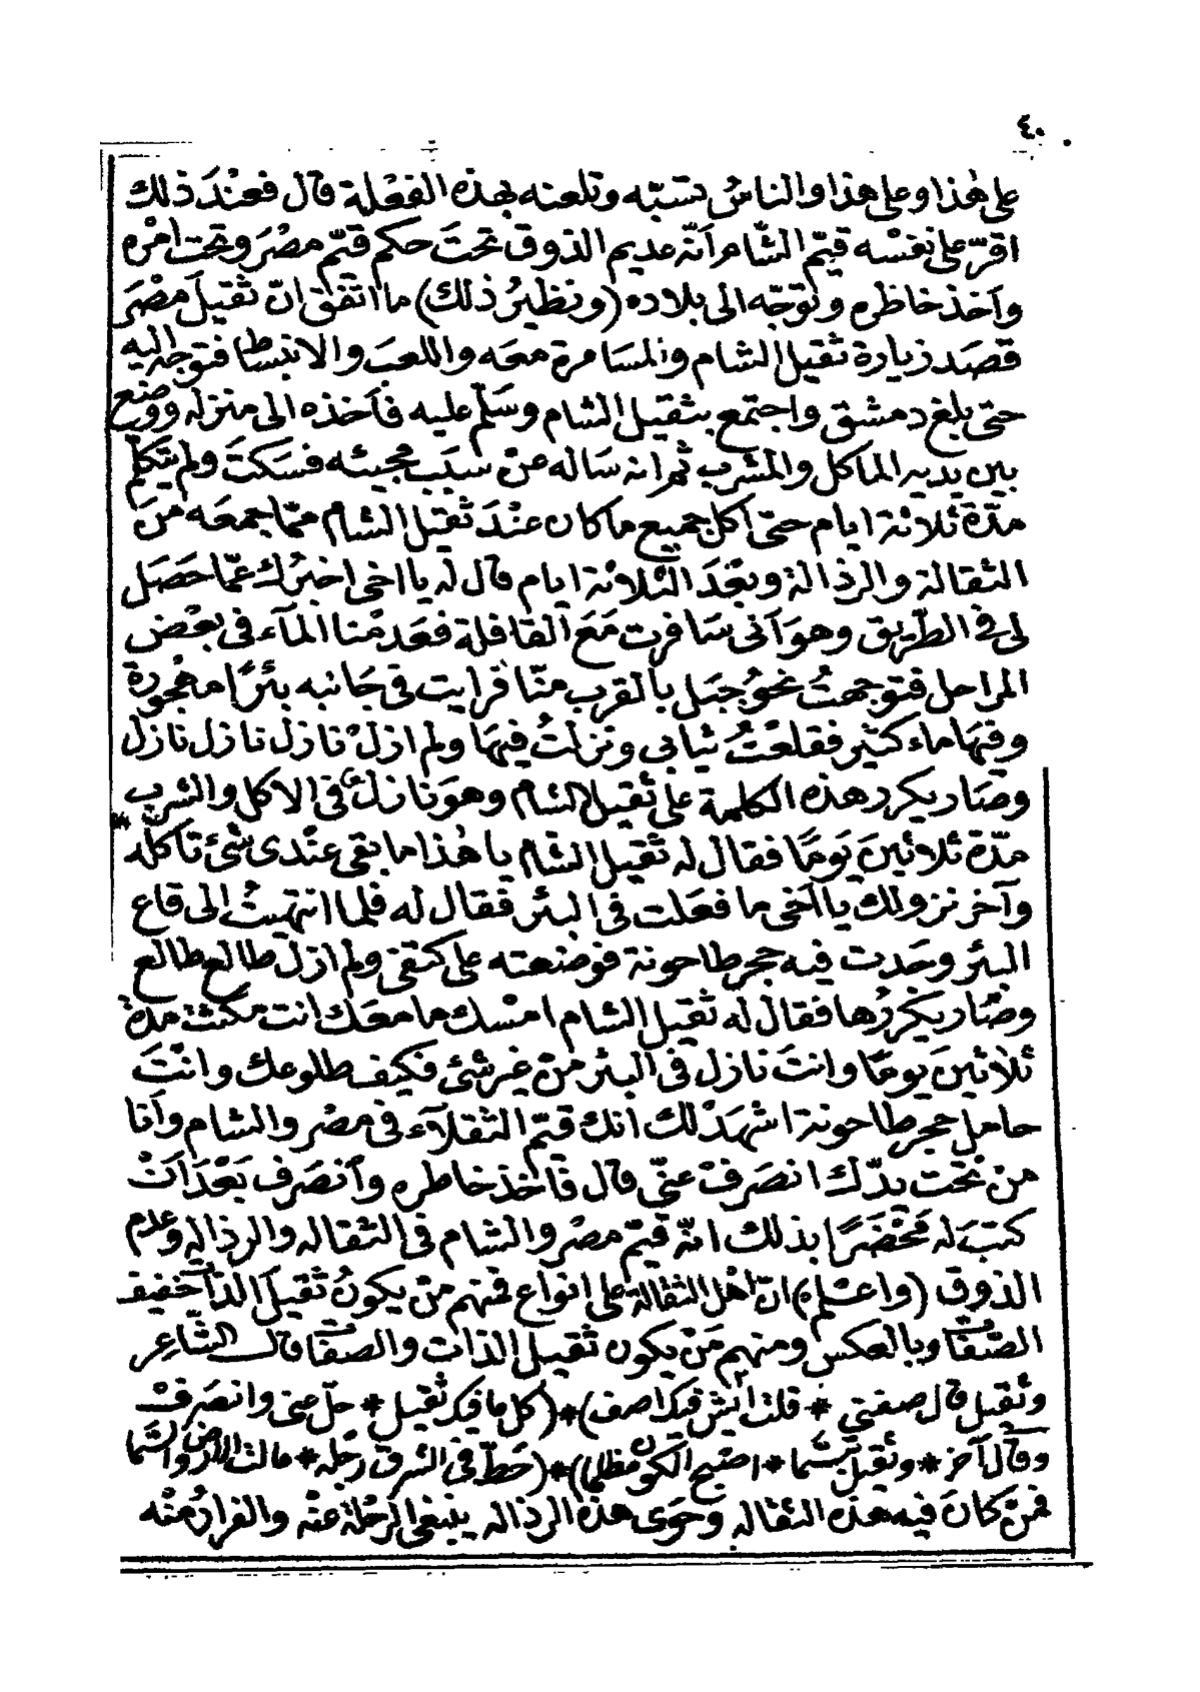 ٤٠
على هٰذا وعلى هذا والناسُ تسبّه وتلعنه بهذه الفعْلة قال فعنْدَ ذلك
اقرّ على نفسْه قيّم الشّام اَنّه عديم الذوق تحتَ حكم قيّم مصْرَ وتحت امْره
واَخذ خاطره وتوَجّه الى بلاده (ونظيرُ ذلك) ما اتفق انّ ثقيلَ مصْرَ
قصَد زيارة ثقيل الشام والمسامرة معَه واللعبَ والانبساط فتوجه اليه
حتى بلغ دمشق واجتمع بثقيل الشام وسَلّم عليه فاَخذه الى منزله ووضع
بين يديه الماكل والمشرب ثم انه سَاله عنْ سبَب مجيئه فسَكتَ ولم يتكلّم
مدّة ثلاثة ايام حتى اكل جميع ما كان عنْدَ ثقيل الشام ممّا جمعَه منَ
الثقالة والرذالة وبعْدَ الثلاثة ايام قال له يا اخى اخبرُك عمّا حصَل
لى فى الطّريق وهوَ اَنى سَافرت مَع القافلة فعَدمْنا المآء فى بعْض
المراحل فتوجهتُ نحوَ جبَل بالقرب منّا فرايت فى جَانبه بئرًا مهْجورة
وفيهَا ماء كثير فقلعْتُ ثيابى ونزلتُ فيهَا ولم ازلْ نازلْ نازل نازل
وصَار يكرر هذه الكلمة على ثقيل الشام وهوَ نازلْ فى الاكل والشرب
مدّة ثلاثينَ يَومًا فقال له ثقيل الشام يا هٰذا ما بقى عنْدى شئ تاَكله
وآخر نزولك يا اَخى ما فعَلت فى البئر فقال له فلما انتهيتُ الى قاع
البئر وجَدت فيه حجر طاحونة فوضعته على كتفى ولم ازلْ طالع طالع
وصَار يكررُها فقالْ له ثقيل الشام امْسك ما معَك انت مكثت مدة
ثلاثينَ يومًا وانتَ نازل فى البئر منْ غير شئ فكيف طلوعك وانْتَ
حامل حجر طاحونة اشهَدْ لك انك قيّم الثقلآء فى مصْر والشام واَنا
منْ تحْت يدّك انصَرفْ عنّى قال فاَخذ خاطره واَنصَرف بَعْدَ اَنْ
كتبَ له محْضَرًا بذلك انّه قيّم مصْر والشام فى الثقاله والرذاله وعدم
الذوق (واعْلم) انّ اهْل الثقالة على انواع فمنهم منْ يكونُ ثقيلَ الذات خفيف
الصّفات وبالعكس ومنهم مَنْ يكون ثقيل الذات والصفات قال الشاعر
وثقيل قال صفنى * قلت ايش فيك اصف) * (كل ما فيك ثقيل * حلّ عنى وانصَرفْ
وقال آخر * وثقيل تشّما * اصبح الكون مظلما) * (حَطّ فى الشرق رجله * مالت الارض والسّما
فمنْ كانَ فيه هذه الثقاله وحَوى هذه الرذاله ينبغى الرّحْلة عنْه والفرارُ منْه